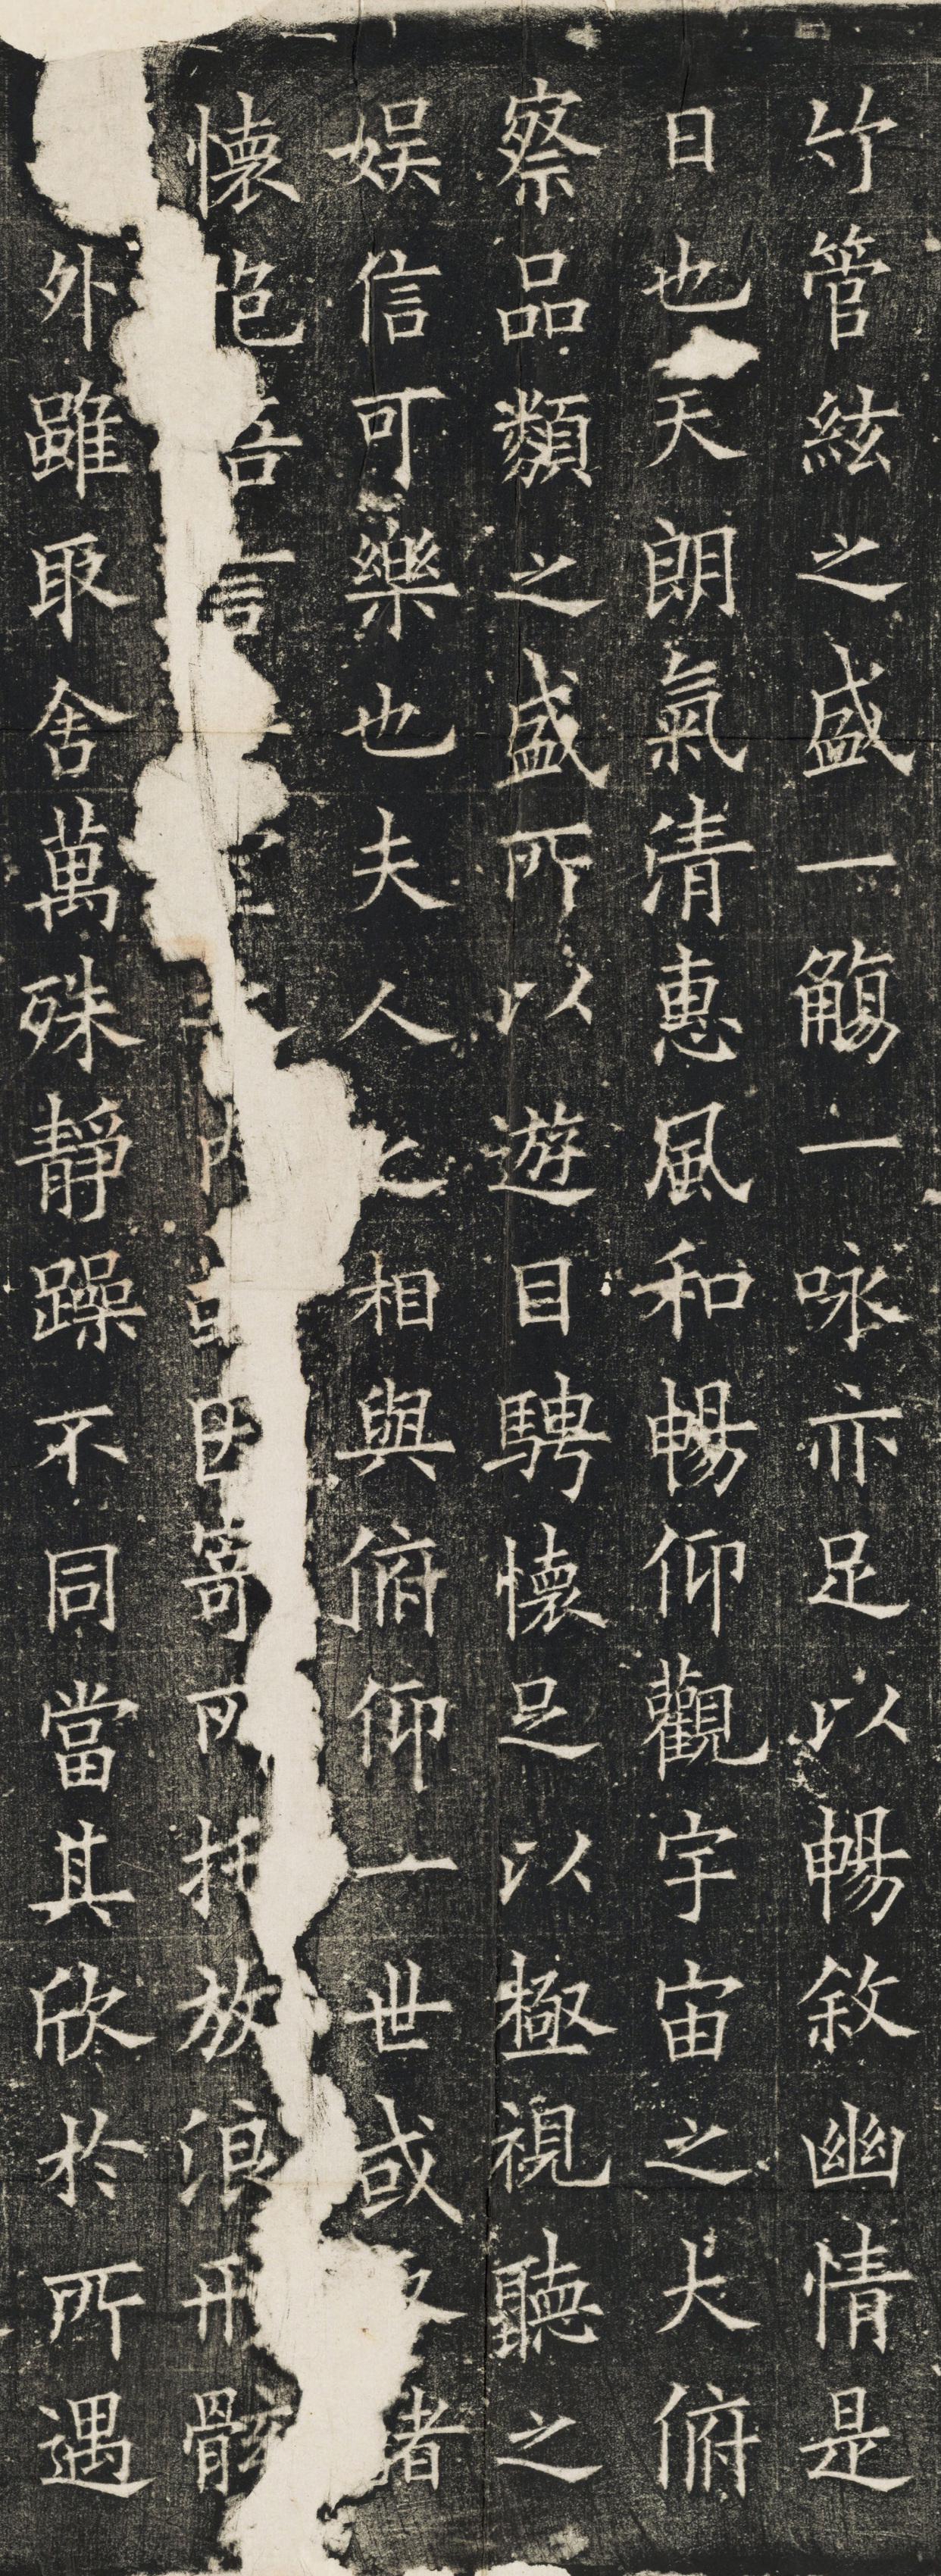 竹管絃之盛一觴一咏亦足以暢敘幽情是
日也天朗氣清惠風和暢仰觀宇宙之大俯
察品類之盛所以遊目騁懷足以極視聽之
娱信可樂也夫人之相與俯仰一世或諸
懷抱言或因寄所托放浪形骸
外雖取舍萬殊靜躁不同當其欣於所遇